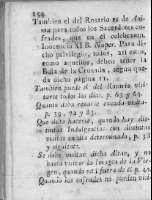 154
Tambien el del Rosario es de Ani-
ma para todos los Sacerdotes co-
frades, que en él celebraren.
Inocencio XI B. Nuper. Para di-
cho privilegio, todos, así estos,
como aquellos, deben tener la
Bula de la Cruzada, segun que-
da dicho página 11.
También puede el del Rosario visi-
tarse todos los dias, p. 63 y 64.
Quanto deba rezarse cada visita,
p. 39, 72 y 83.
Que deba hacerse, quando hay dis-
tintas Indulgencias con distintas
visitas cada determinada, p. 38
y siguiente.
Se debe visitar dicho Altar, y no
basta visitar la Imagen de la Vir-
gen, quando está fuera de él p. 40.
Quando los cofrades no puedan visi-